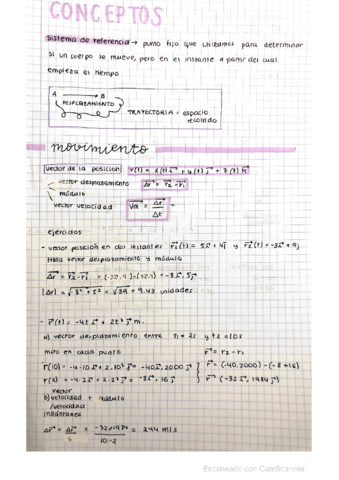 CONCEPTOS
Sistema de referencia → punto fijo que utilizamos para determinar
si un cuerpo se mueve, pero en el instante a partir del cual
empieza el tiempo
A → B
DESPLAZAMIENTO
TRAYECTORIA = espacio
recorrido
movimiento
vector de la posicion r(t) = x(t) i + y(t) j + z(t) k
vector desplazamiento Δr = r2 - r1
módulo
vector velocidad Vm = Δr / Δt =
ejercicios
- vector posición en dos instantes r1(t) = 5i + 4j y r2(t) = -3i + 9j
Halla vector desplazamiento y módulo
Δr = r2 - r1 = (-3, 9) - (5, 4) = -8i, 5j
|Δr| = √-8² + 5² = √89 = 9.43 unidades
- r(t) = -4t i + 2t² j m.
a) vector desplazamiento entre t1 = 2s y t2 = 10s
miro en cada punto r = r2 - r1
r(10) = -4·10 i + 2·10² j = -40i, 2000 j r = (-40, 2000) - (-8 + 16)
r(2) = -4·2i + 2·2² j = -8i, 16 j r (-32 i, 1984 j)
vector
b) velocidad + módulo
/velocidad
instantánea
Δr = Δr / t = -32, 1984 / 10-2 = 244 m/s
Escaneado con CamScanner